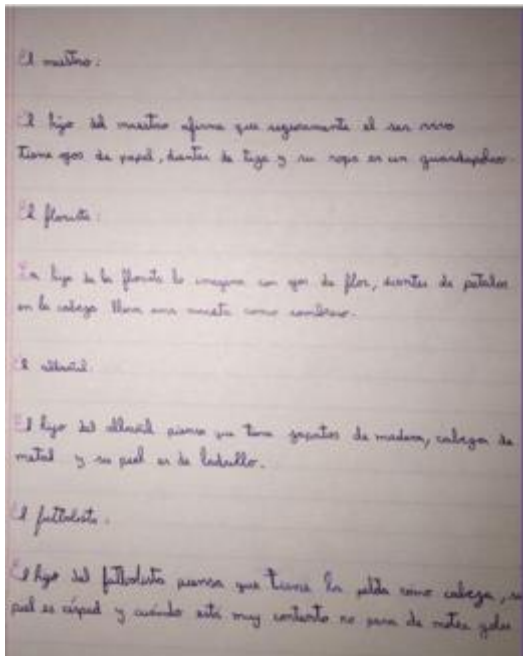 El maestro:
El hijo del maestro afirma que seguramente el ser
tiene ojos de papel, dientes de tiza y su ropa es un guardapolvo.
El florista:
La hija de la florista lo imagina con ojos de flor, dientes de petalos
en la cabeza lleva una maceta como sombrero.
El albañil.
El hijo del albañil piensa que tiene zapatos de madera, cabeza de
metal y su piel es de ladrillo.
El futbolista.
El hijo del futbolista piensa que tiene la pelota como cabeza, su
piel es césped y cuándo está muy contento no para de meter goles